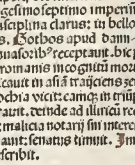 gesimo septimo imperiū
disciplina clarus: in bello
s. Gothos apud danu
uasoribꝰ receptauit. hic p
romanis incognitū mor
cauit in asiā traijciens g
ochia vicit: eamqꝫ in triū
aut. deinde ad illirici re
t malicia notarij sui inter
aunt: senatus timuit. In
scribit.